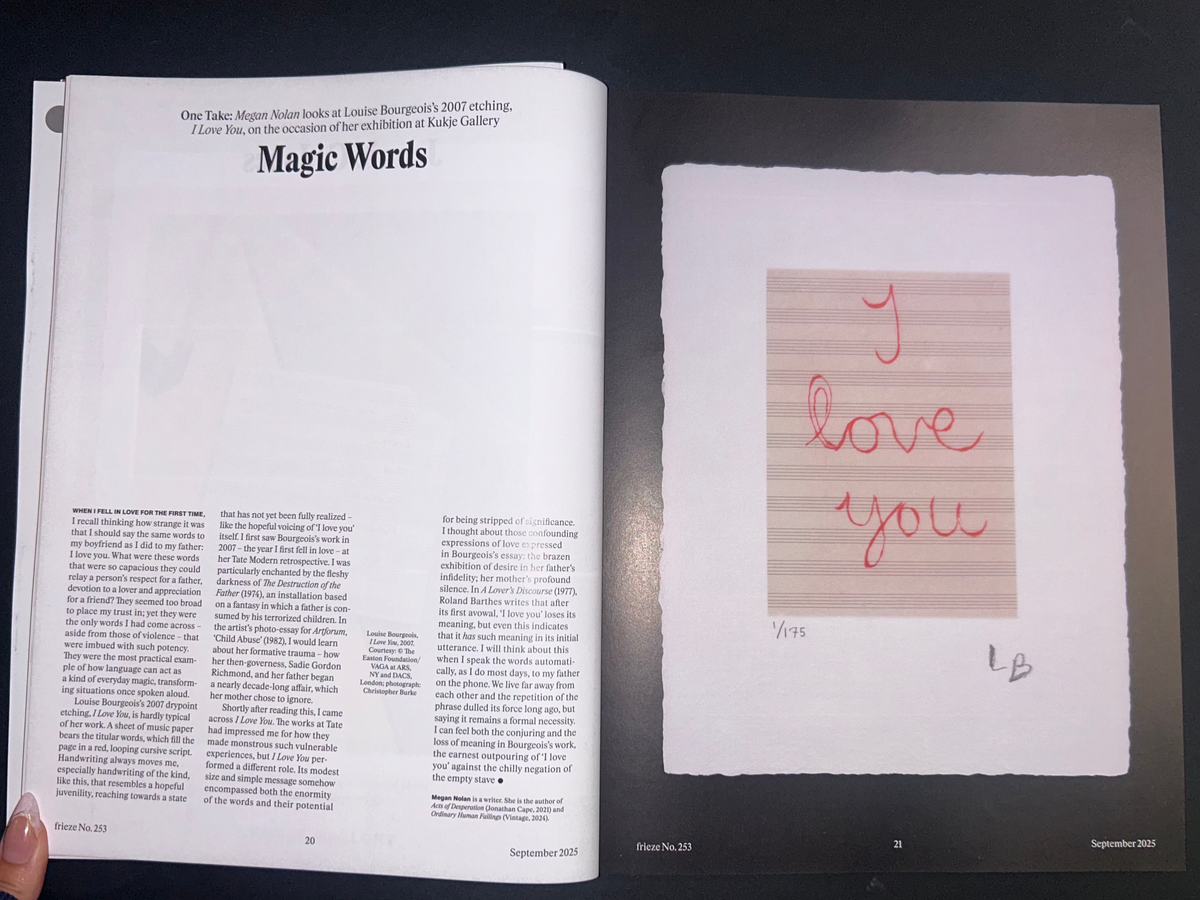 One Take: Megan Nolan looks at Louise Bourgeois's 2007 etching,
I Love You, on the occasion of her exhibition at Kukje Gallery
Magic Words
WHEN I FELL IN LOVE FOR THE FIRST TIME,
I recall thinking how strange it was
that I should say the same words to
my boyfriend as I did to my father:
I love you. What were these words
that were so capacious they could
relay a person's respect for a father,
devotion to a lover and appreciation
for a friend? They seemed too broad
to place my trust in; yet they were
the only words I had come across –
aside from those of violence – that
were imbued with such potency.
They were the most practical exam-
ple of how language can act as
a kind of everyday magic, transform-
ing situations once spoken aloud.
Louise Bourgeois's 2007 drypoint
etching, I Love You, is hardly typical
of her work. A sheet of music paper
bears the titular words, which fill the
page in a red, looping cursive script.
Handwriting always moves me,
especially handwriting of the kind,
like this, that resembles a hopeful
juvenility, reaching towards a state
that has not yet been fully realized –
like the hopeful voicing of 'I love you'
itself. I first saw Bourgeois's work in
2007 – the year I first fell in love – at
her Tate Modern retrospective. I was
particularly enchanted by the fleshy
darkness of The Destruction of the
Father (1974), an installation based
on a fantasy in which a father is con-
sumed by his terrorized children. In
the artist's photo-essay for Artforum,
'Child Abuse' (1982), I would learn
about her formative trauma – how
her then-governess, Sadie Gordon
Richmond, and her father began
a nearly decade-long affair, which
her mother chose to ignore.
Shortly after reading this, I came
across I Love You. The works at Tate
had impressed me for how they
made monstrous such vulnerable
experiences, but I Love You per-
formed a different role. Its modest
size and simple message somehow
encompassed both the enormity
of the words and their potential
Louise Bourgeois,
I Love You, 2007.
Courtesy: © The
Easton Foundation/
VAGA at ARS,
NY and DACS,
London; photograph:
Christopher Burke
for being stripped of significance.
I thought about those confounding
expressions of love expressed
in Bourgeois's essay: the brazen
exhibition of desire in her father's
infidelity; her mother's profound
silence. In A Lover's Discourse (1977),
Roland Barthes writes that after
its first avowal, 'I love you' loses its
meaning, but even this indicates
that it has such meaning in its initial
utterance. I will think about this
when I speak the words automati-
cally, as I do most days, to my father
on the phone. We live far away from
each other and the repetition of the
phrase dulled its force long ago, but
saying it remains a formal necessity.
I can feel both the conjuring and the
loss of meaning in Bourgeois's work,
the earnest outpouring of 'I love
you' against the chilly negation of
the empty stave ●
Megan Nolan is a writer. She is the author of
Acts of Desperation (Jonathan Cape, 2021) and
Ordinary Human Failings (Vintage, 2024).
frieze No. 253
20
September 2025
I
love
you
1/175
LB
frieze No. 253
21
September 2025